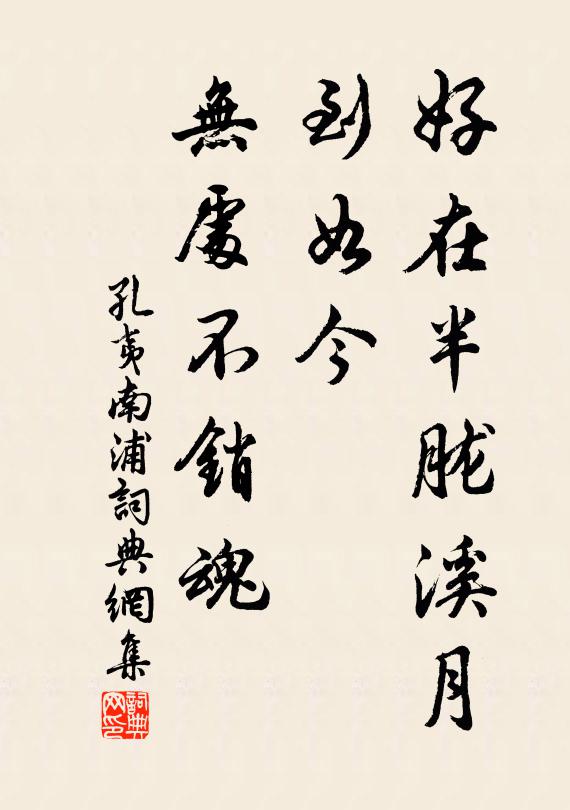 好在半胧溪月
到如今
無處不銷魂
孔夷南浦詞典網集
詞典网印